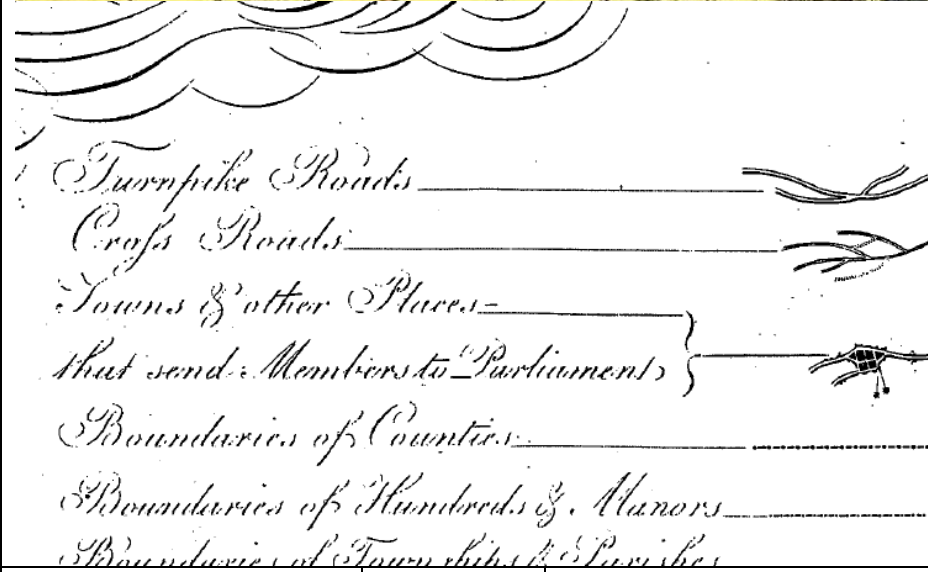 Turnpike Roads
Croſs Roads
Towns & other Places
that send Members to Parliament
Boundaries of Counties
Boundaries of Hundreds & Manors
Boundaries of Townships & Parishes